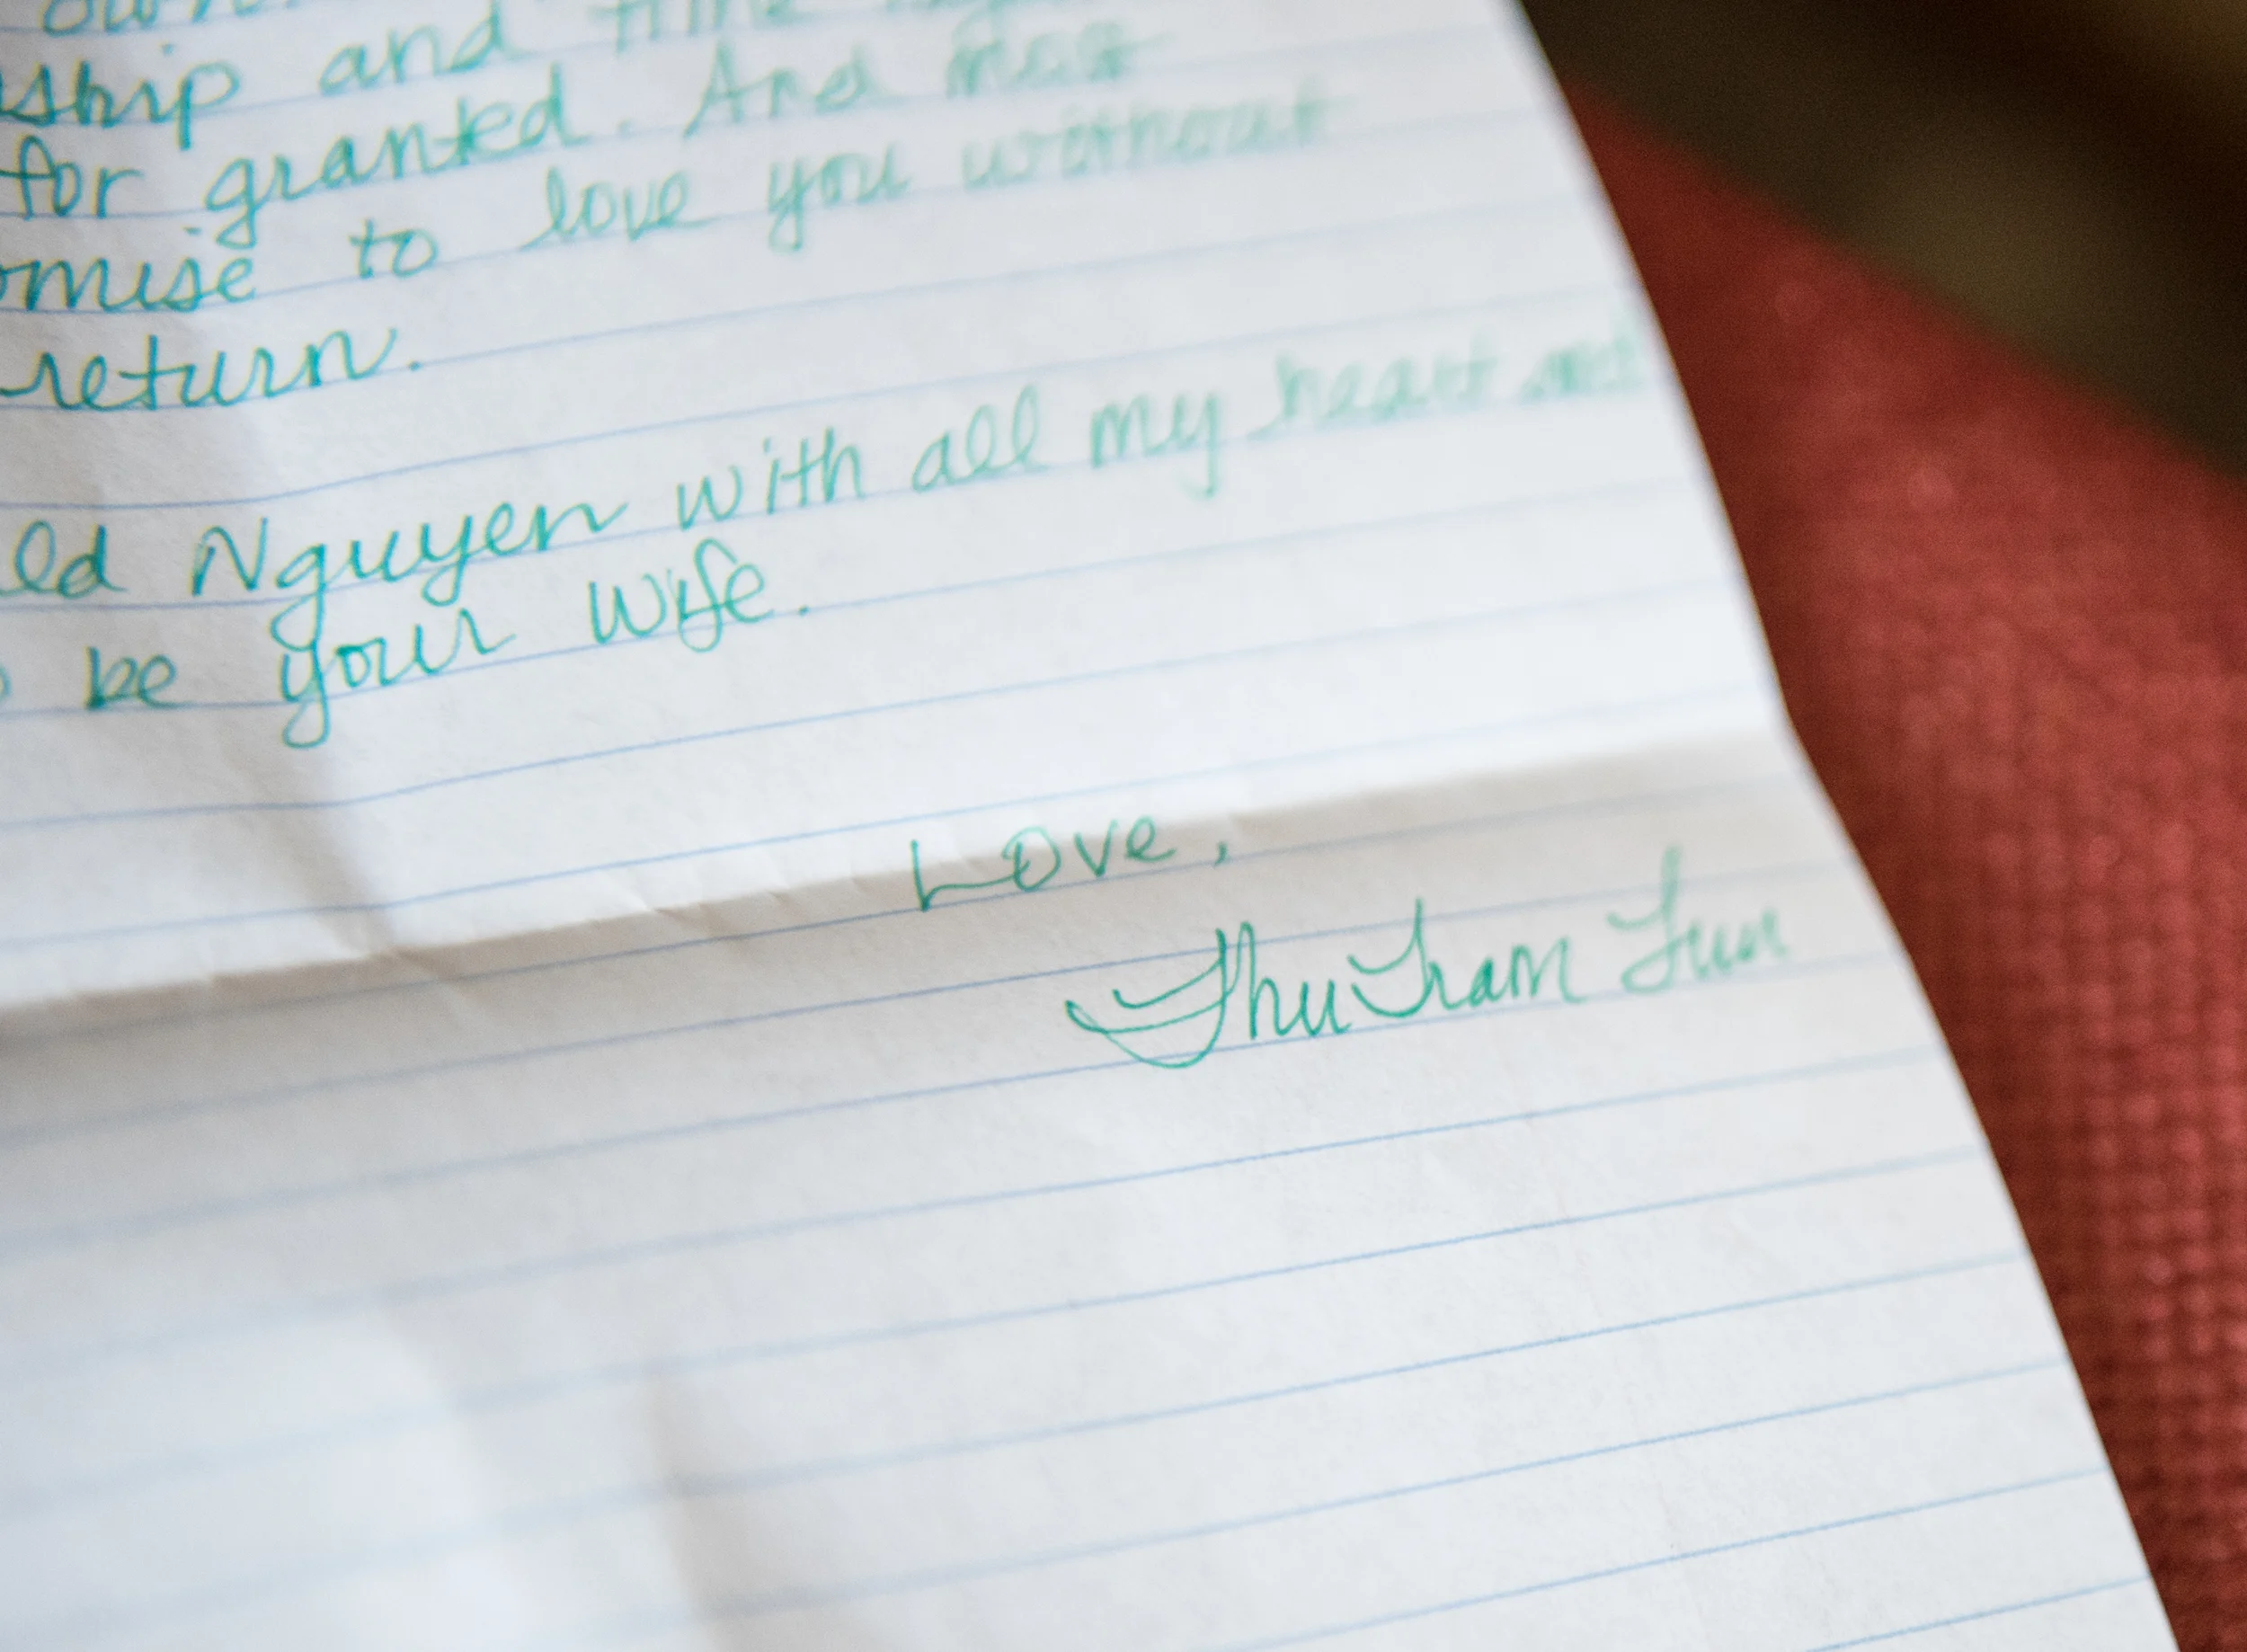 ship and
for granted. And
omise to love you without
return.
ld Nguyen with all my heart and
be your wife.
Love,
ThuTram Luu